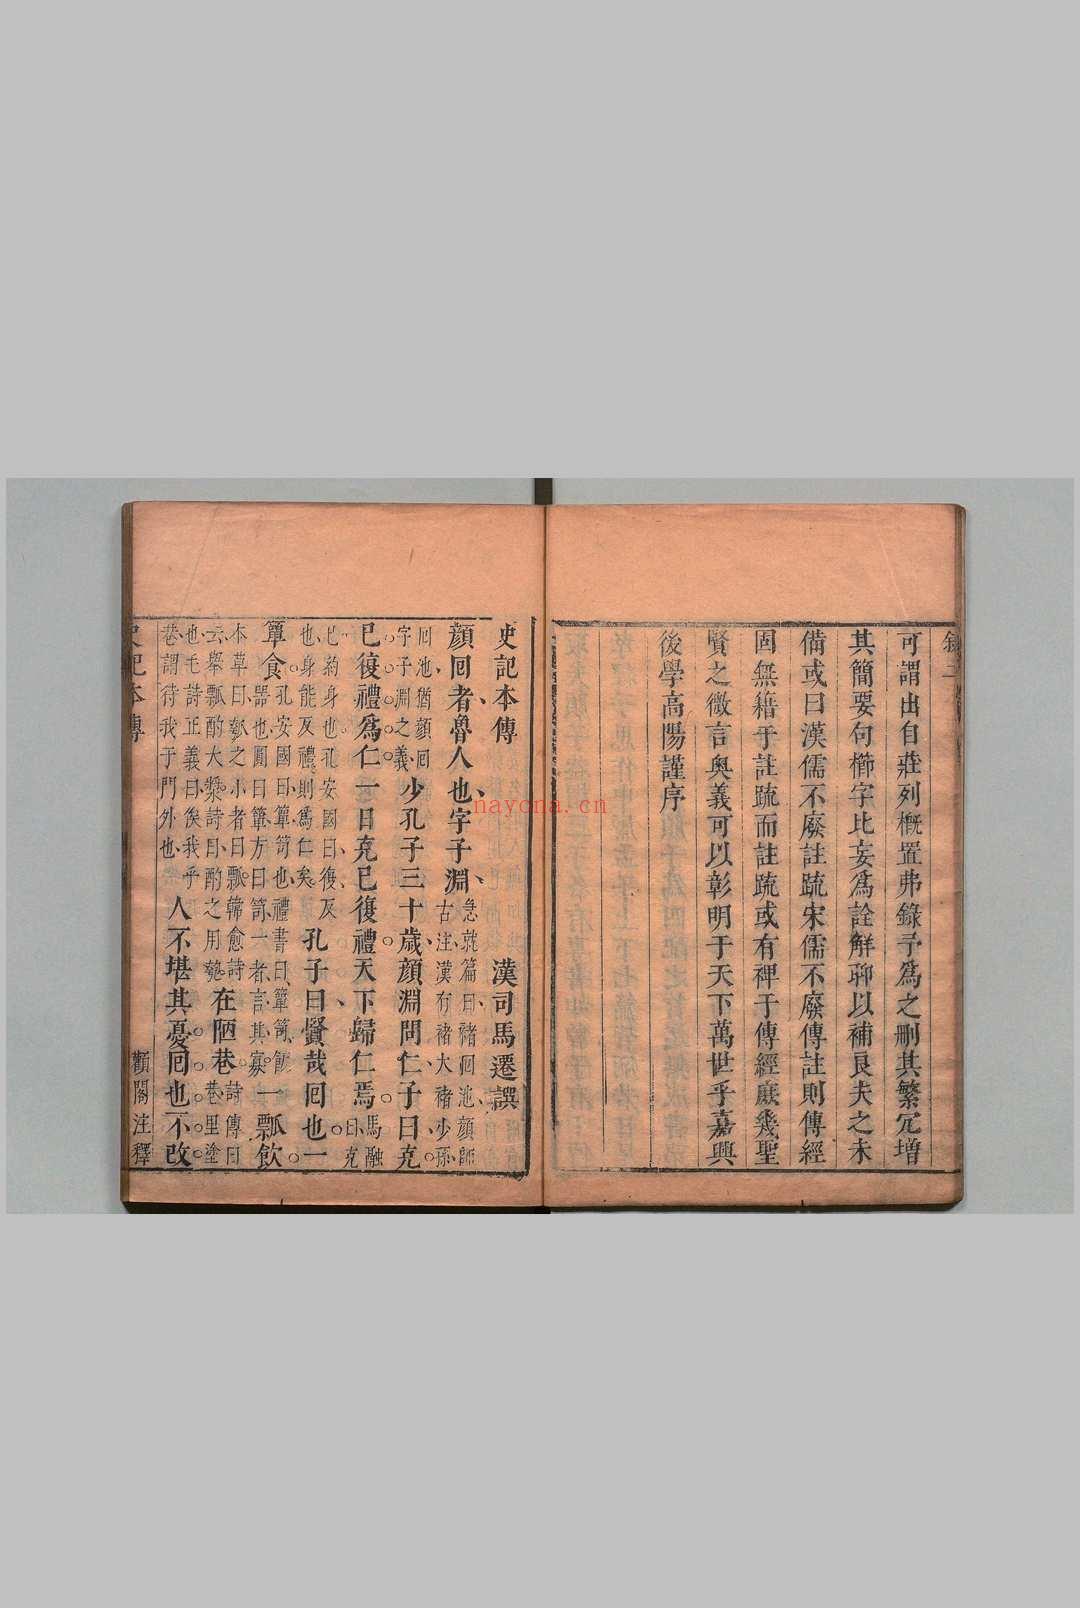 可謂出自莊列槪置弗錄予爲之刪其繁冗增
其簡要句櫛字比妄爲詮解聊以補艮夫之未
備或曰漢儒不廢註疏宋儒不廢傳註則傳經
固無籍于註疏而註疏或有裨于傳經庶幾聖
賢之微言奥義可以彰明于天下萬世乎嘉興
後學高陽謹序
史記本傳 漢司馬遷譔
顏回者魯人也字子淵
急就篇曰禇回池顏師
古注漢有禇大禇少孫
回池猶顏回
字子淵之義
少孔子三十歲顏淵問仁子曰克
已復禮爲仁一日克已復禮天下歸仁焉
馬融
曰克
已約身也孔安國曰復反
也身能反禮則爲仁矣
孔子曰賢哉回也一
簞食
孔安國曰簞笥也禮書曰簞笥飯
器也圓曰簞方曰笥
一瓢飲
本草曰瓠之小者曰瓢韓愈詩
云舉瓢酌大㯶詩曰酌之用匏
在陋巷
詩傳曰
巷里塗
也毛詩正義曰俟我乎
巷謂待我于門外也
人不堪其憂回也不改
史記本傳
顴閣注釋
nayona.cn